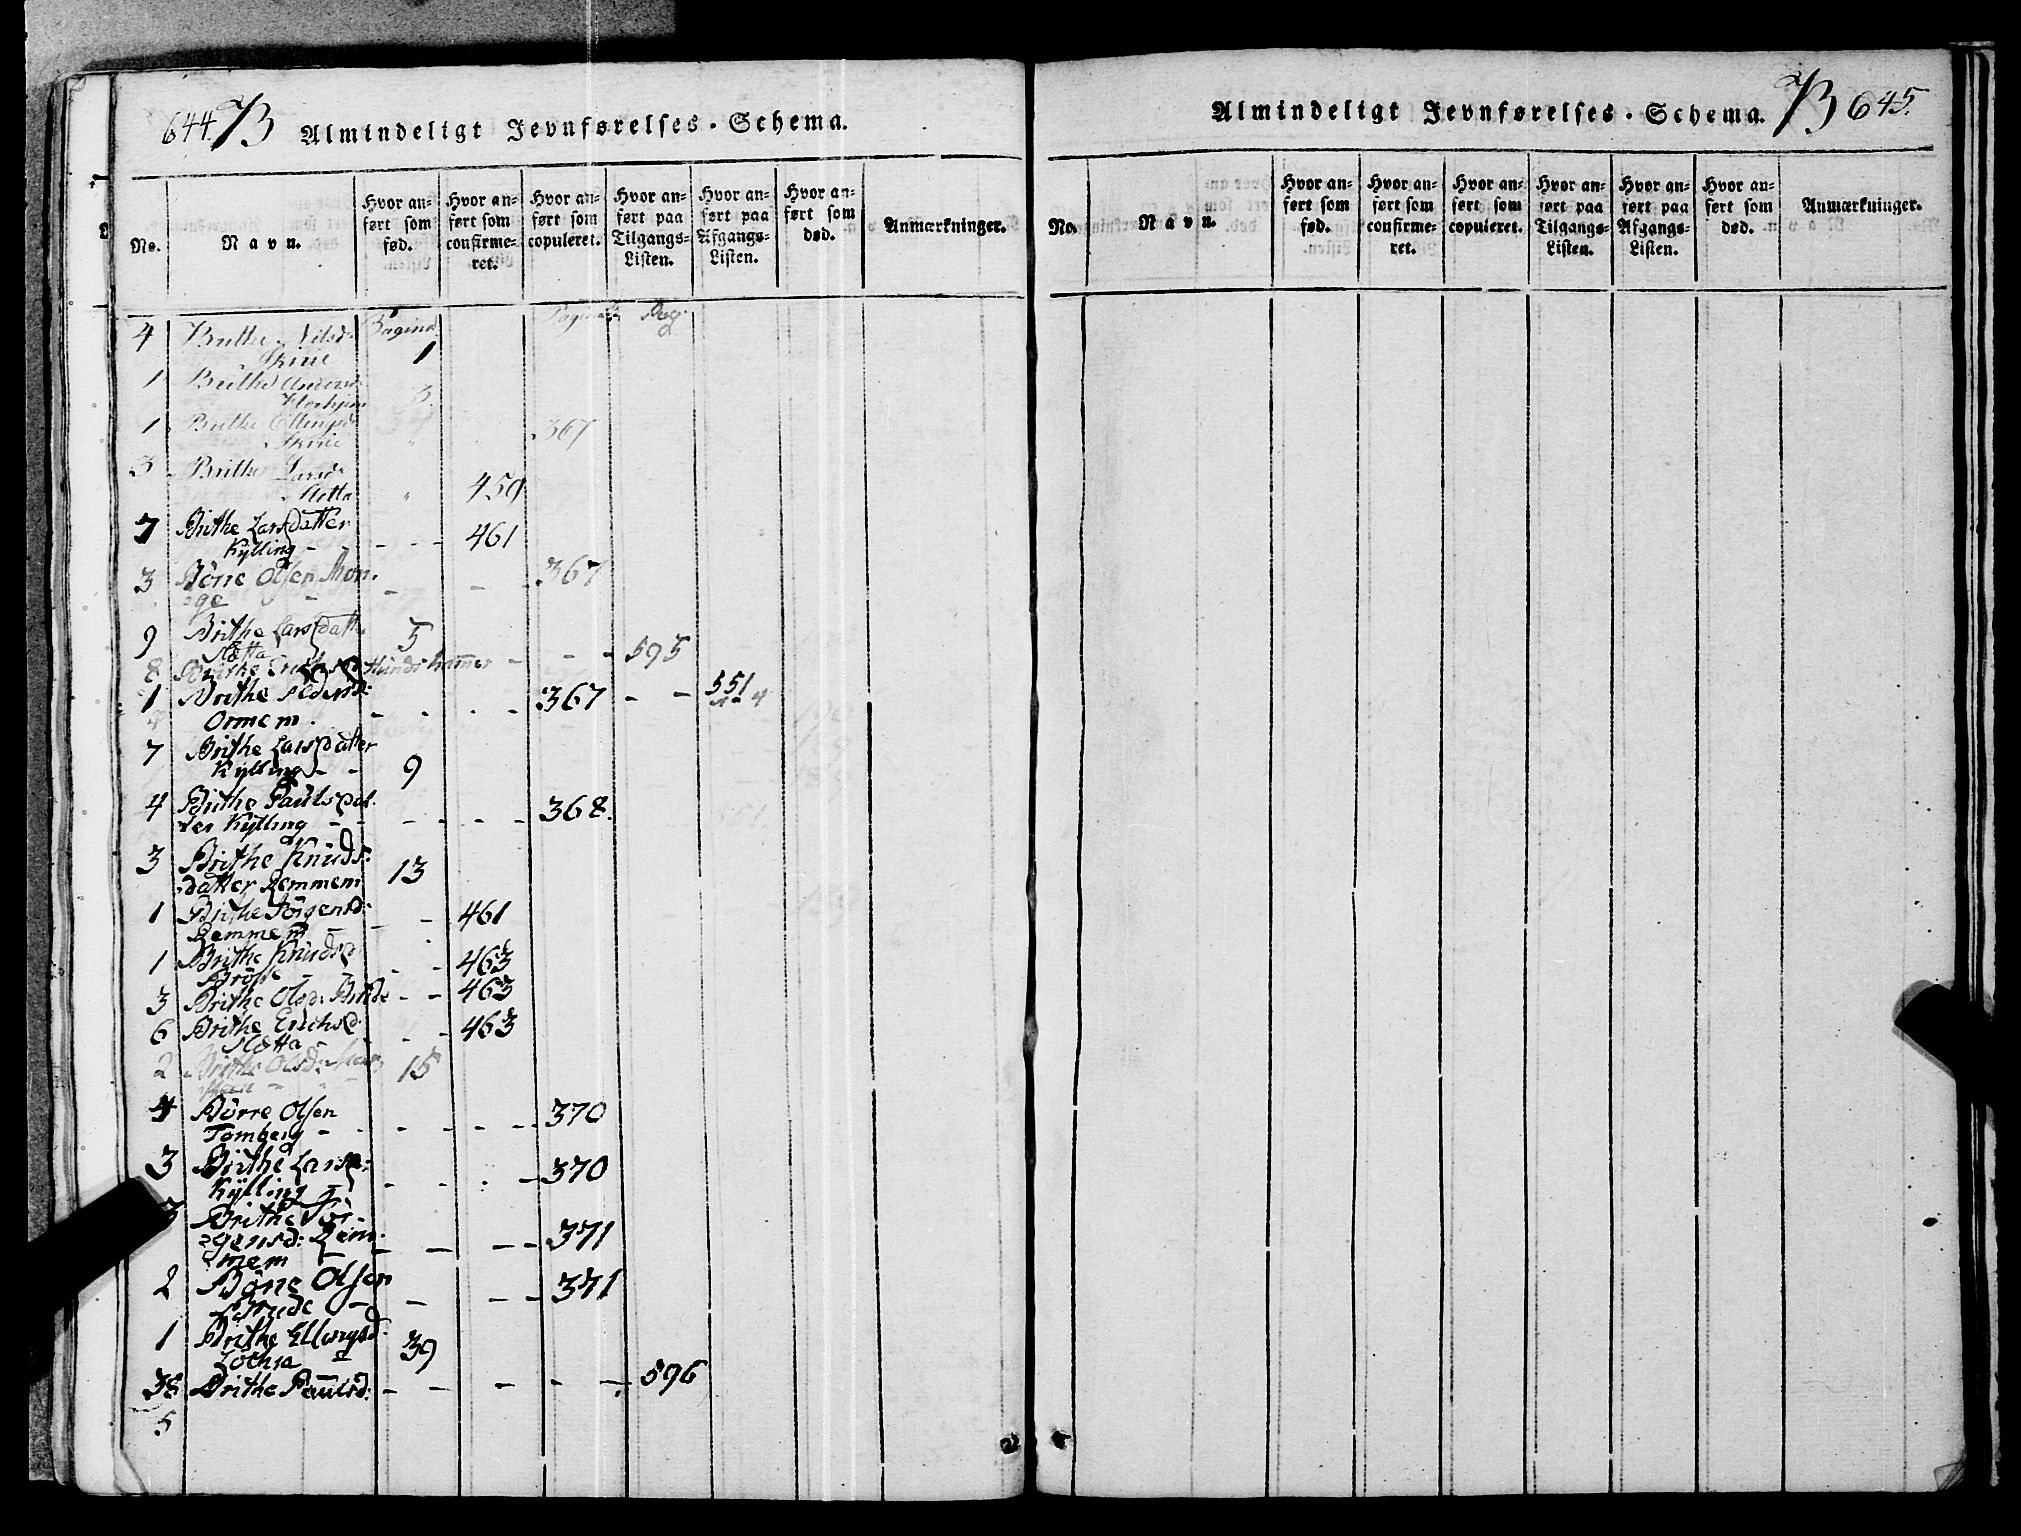 644. B Almindeligt Jevnførelses-Schema.
No. Navn. Hvor anført som fød. Hvor anført som confirmeret. Hvor anført som copuleret. Hvor anført paa Tilgangs-Listen. Hvor anført paa Afgangs-Listen. Hvor anført som død. Anmærkninger.
Pagina Pagina Pag.
4 Brithe Nilsd:
Skirie 1
1 Brithe Andersd:
3.
1 Brithe Ellingsd:
Skirie " " 367
3 Brithe Larsd:
Sletta " 459
7 Brithe Larsdatter
Kylling - - - - - 461
3 Börre Olsen Mon-
ge - - - 367
9 Brithe Larsdatter 5
Sletta - - - 595
8 Brithe
1 Brithe Pedersd:
Ormem. - - - - 367 - - 551
7 Brithe Larsdatter
Kylling - - 9
4 Brithe Paulsdat-
ter Kylling - - - - - - 368.
3 Brithe Knuds-
datter Remmem 13
1 Brithe Jörgensd:
Remmem - - - 461
1 Brithe Knudsd:
- - 463
3 Brithe Olsd: Brude - - 463
6 Brithe Erichsd:
Sletta - - - 463
2 Brithe Olsd: 15
4 Börre Olsen
Tomberg - - - - - - 370
3 Brithe Larsd:
Kylling - - - : - 370
3 Brithe Jör-
gensd: Rem-
mem - - - - 371
2 Börre Olsen
Brude - - - - 371
1 Brithe Ellingsd:
39
38 Brithe Paulsd: - - - - - 596
5
Almindeligt Jevnførelses-Schema. B 645.
No. Navn. Hvor anført som fød. Hvor anført som confirmeret. Hvor anført som copuleret. Hvor anført paa Tilgangs-Listen. Hvor anført paa Afgangs-Listen. Hvor anført som død. Anmærkninger.